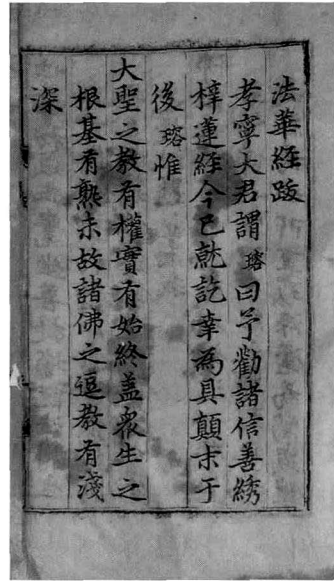 法華經跋
孝寧大君謂瑢曰予勸諸信善綉
梓蓮經今已就訖幸爲具顛末于
後瑢惟
大聖之教有權實有始終盖衆生之
根基有熟未故諸佛之逗教有淺
深